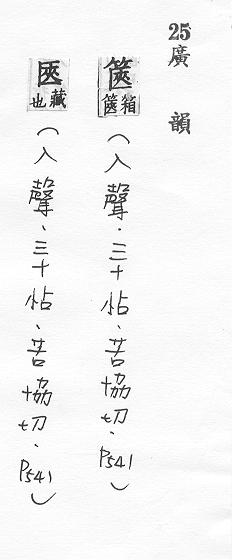 25廣 韻
篋 箱篋(入聲.三十帖、苦協切.P541)
匧 藏也(入聲、三十帖、苦協切.P541)